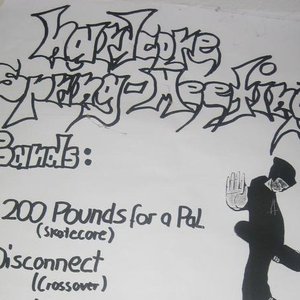 Hardcore
Spring-Meeting
Bands:
200 Pounds for a Pal
(Skatecore)
Disconnect
(Crossover)